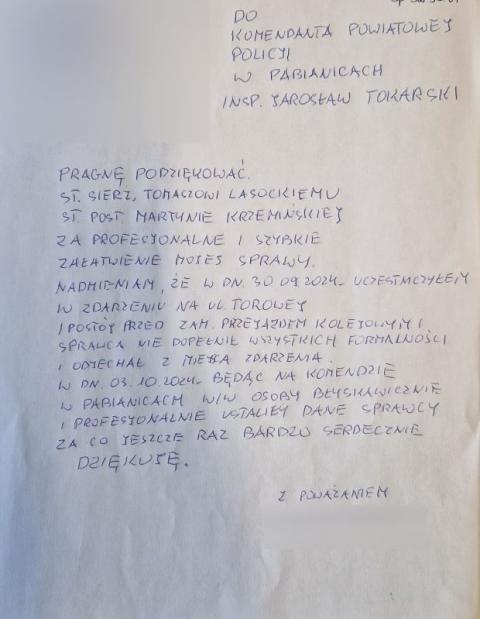 DO
KOMENDANTA POWIATOWEJ
POLICJI
W PABIANICACH
INSP. JAROSŁAW TOKARSKI
PRAGNĘ PODZIĘKOWAĆ.
ST. SIERŻ, TOMASZOWI LASOCKIEMU
ST POST. MARTYNIE KRZEMIŃSKIEJ
ZA PROFESJONALNE I SZYBKIE
ZAŁATWIENIE MOJES SPRAWY.
NADMIENIAM, ŻE W DN. 30.09.2024 UCZESTNICZYŁEM
W ZDARZENIU NA UL TOROWEJ
/POSTÓJ PRZED ZAM. PRZEJAZDEM KOLEJOWYM/
SPRAWCA NIE DOPEŁNIŁ WSZYSTKICH FORMALNOŚCI
I ODJECHAŁ Z MIEJSCA ZDARZENIA.
W DN. 03.10.2024 BĘDĄC NA KOMENDZIE
W PABIANICACH W/W OSOBY BŁYSKAWICZNIE
I PROFESJONALNIE USTALIŁY DANE SPRAWCY
ZA CO JESZCZE RAZ BARDZO SERDECZNIE
DZIĘKUJĘ.
Z POWAŻANIEM